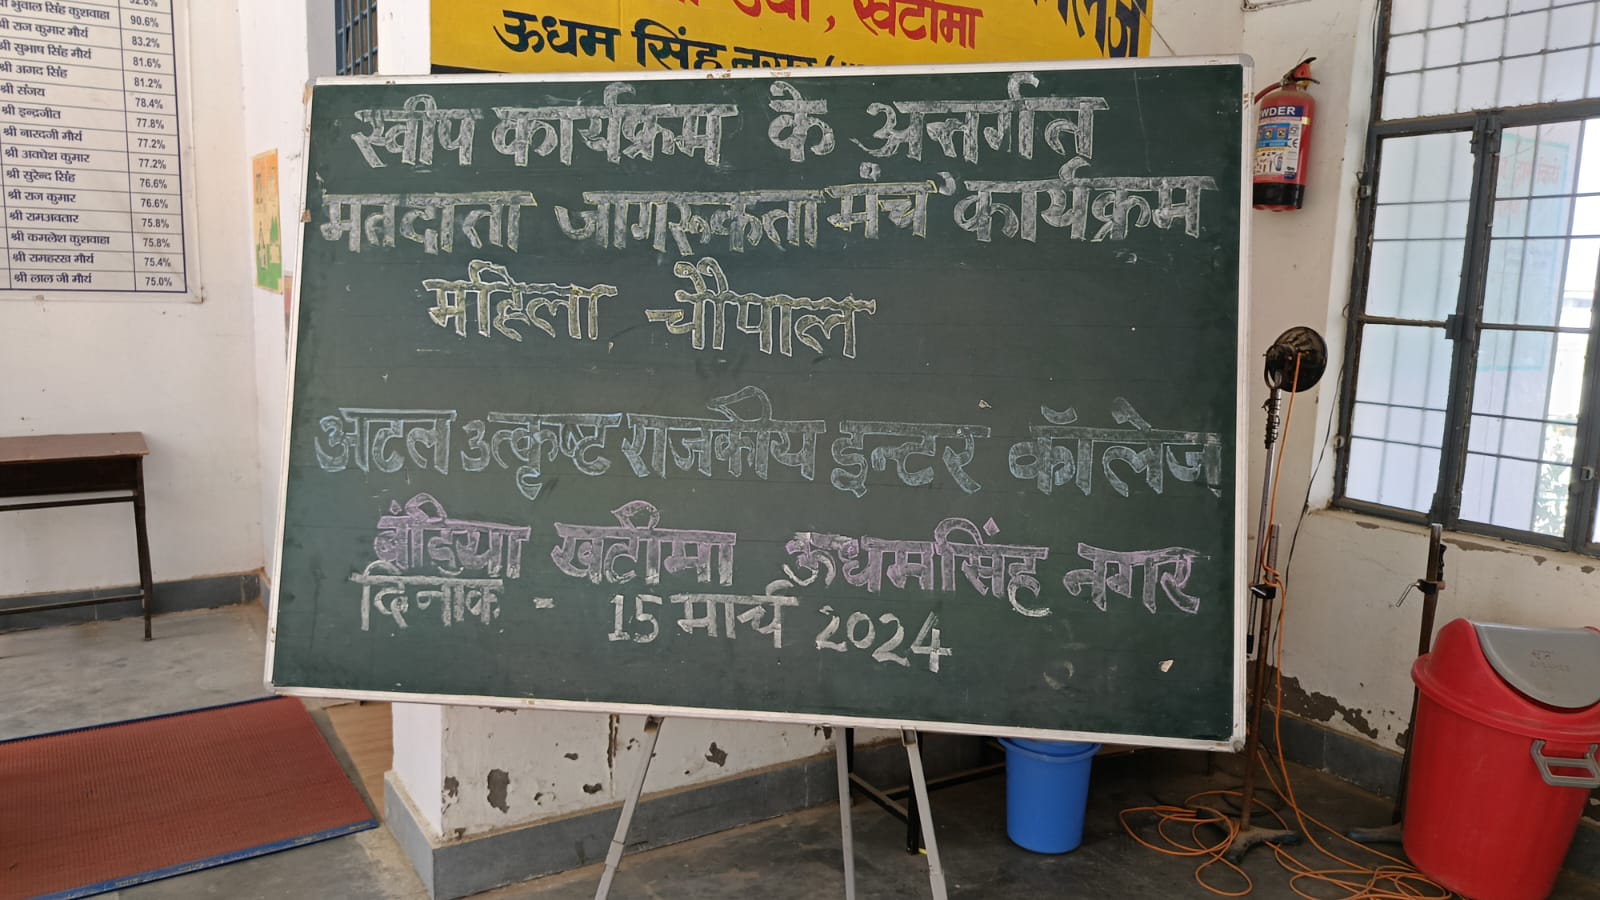 श्री भुवाल सिंह कुशवाहा
श्री राज कुमार मौर्य 90.6%
श्री सुभाष सिंह मौर्य 83.2%
श्री अगद सिंह 81.6%
श्री संजय 81.2%
श्री इन्द्रजीत 78.4%
श्री नारदजी मौर्य 77.8%
श्री अवधेश कुमार 77.2%
श्री सुरेन्द सिंह 77.2%
श्री राज कुमार 76.6%
श्री रामअवतार 76.6%
श्री कमलेश कुशवाहा 75.8%
श्री रामहरख मौर्य 75.8%
श्री लाल जी मौर्य 75.4%
75.0%
खटीमा
ऊधम सिंह नगर
स्वीप कार्यक्रम के अन्तर्गत
मतदाता जागरूकता मंच' कार्यक्रम
महिला चौपाल
अटल उत्कृष्ट राजकीय इन्टर कॉलेज
बंडिया खटीमा ऊधमसिंह नगर
दिनॉक - 15 मार्च 2024